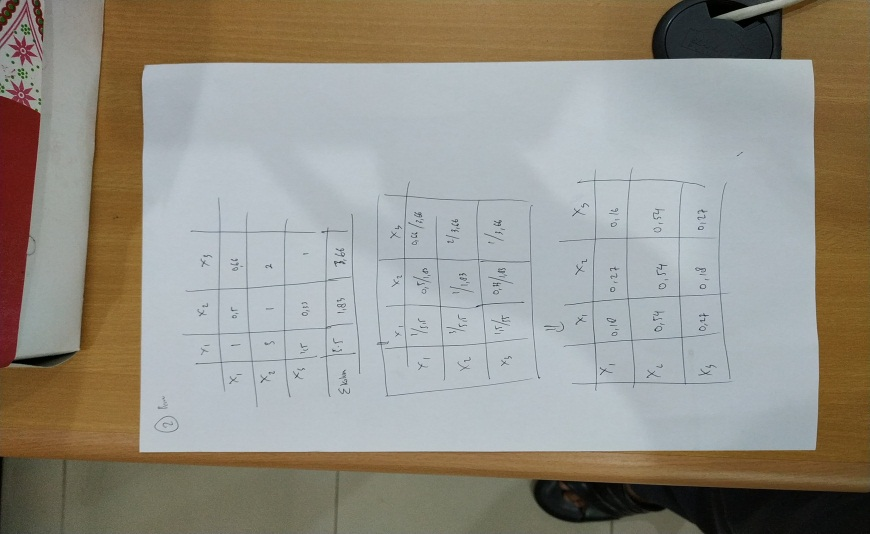 2
X1 X2 X3
X1 1 0,5 0,66
X2 3 1 2
X3 1,5 0,33 1
Σkolom 5.5 1,83 3,66
X1 X2 X3
X1 1/5,5 0,5/1,83 0,66/3,66
X2 3/5,5 1/1,83 2/3,66
X3 1,5/5,5 1/3,66
X1 X2 X3
X1 0,18 0,27 0,16
X2 0,54 0,54 0,54
X3 0,27 0,18 0,27